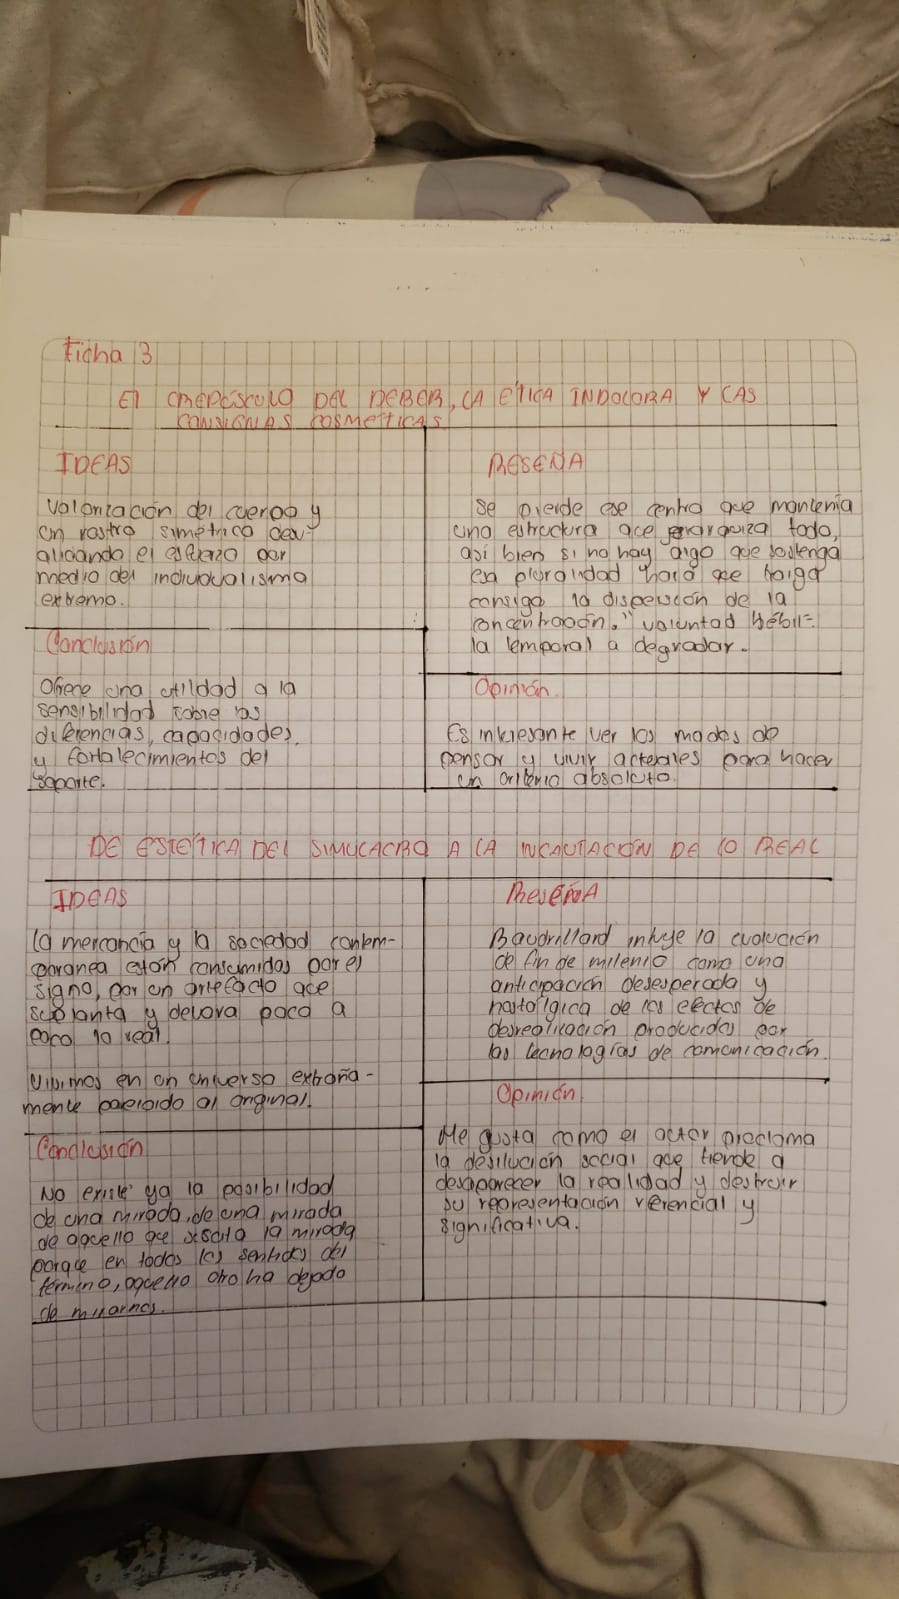 Ficha 3
El CREPÚSCULO DEL DEBER, LA ETICA INDOLORA Y LAS
CONSIGNAS COSMETICAS
IDEAS
Valorización del cuerpo y
un rostro simétrico
el esfuerzo por
medio del individualismo
extremo.
Conclusión
Ofrece una utilidad a la
sensibilidad sobre las
diferencias, capacidades,
y fortalecimientos del
soporte.
RESEÑA
Se pierde ese centro que mantenia
una estructura que jerarquiza todo,
así bien si no hay algo que sostenga
esa pluralidad hará que traiga
consigo la dispersión de la
concentración." voluntad débil=
la temporal a degradar.
Opinión
Es interesante ver los modos de
pensar y vivir actuales para hacer
un criterio absoluto.
DE ESTÉTICA DEL SIMULACRO A LA INCAUTACIÓN DE LO REAL
IDEAS
la mercancía y la sociedad contem-
poranea están consumidas por el
signo, por un artefacto que
suplanta y devora poco a
poco lo real.
Vivimos en un universo extraña-
mente parecido al original.
Conclusión
No existe ya la posibilidad
de una mirada, de una mirada
de aquello que suscita la mirada
porque en todos los sentidos del
término, aquello otro ha dejado
de mirarnos.
RESEÑA
Baudrillard intuye la evolución
de fin de milenio como una
anticipación desesperada y
nostálgica de los efectos de
desrealización producidos por
las tecnologías de comunicación.
Opinión
Me gusta como el actor proclama
la desilución social que tiende a
desaparecer la realidad y destruir
su representación referencial y
significativa.